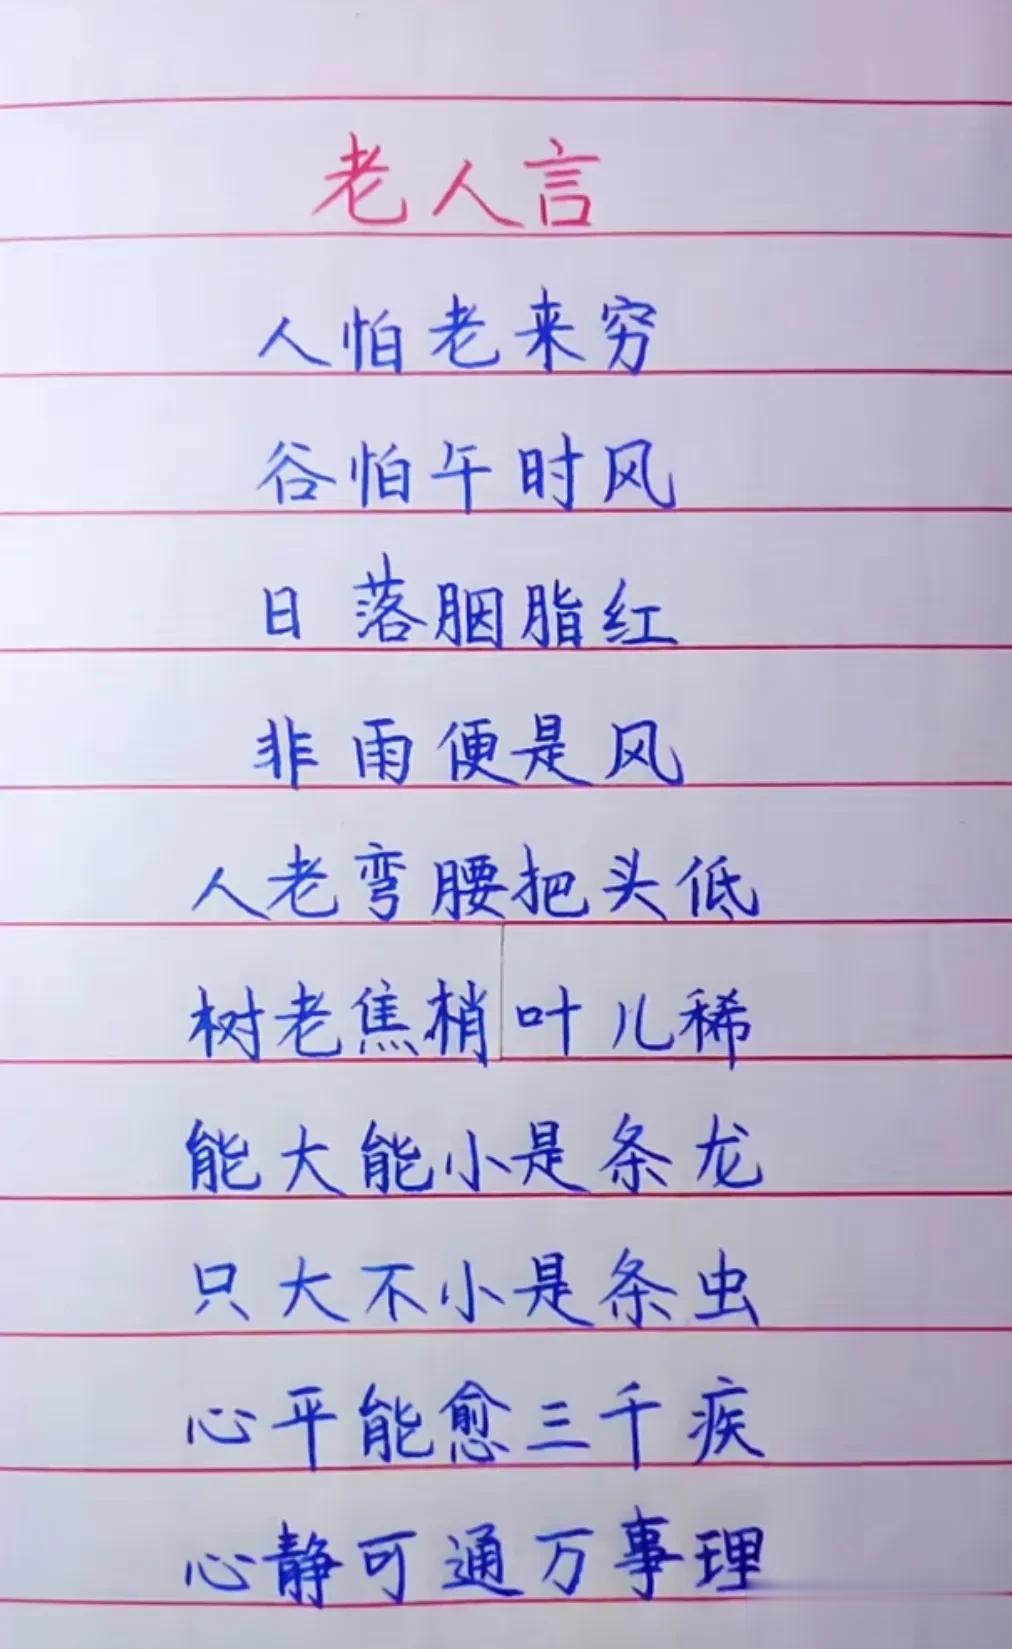 老人言
人怕老来穷
谷怕午时风
日落胭脂红
非雨便是风
人老弯腰把头低
树老焦梢叶儿稀
能大能小是条龙
只大不小是条虫
心平能愈三千疾
心静可通万事理